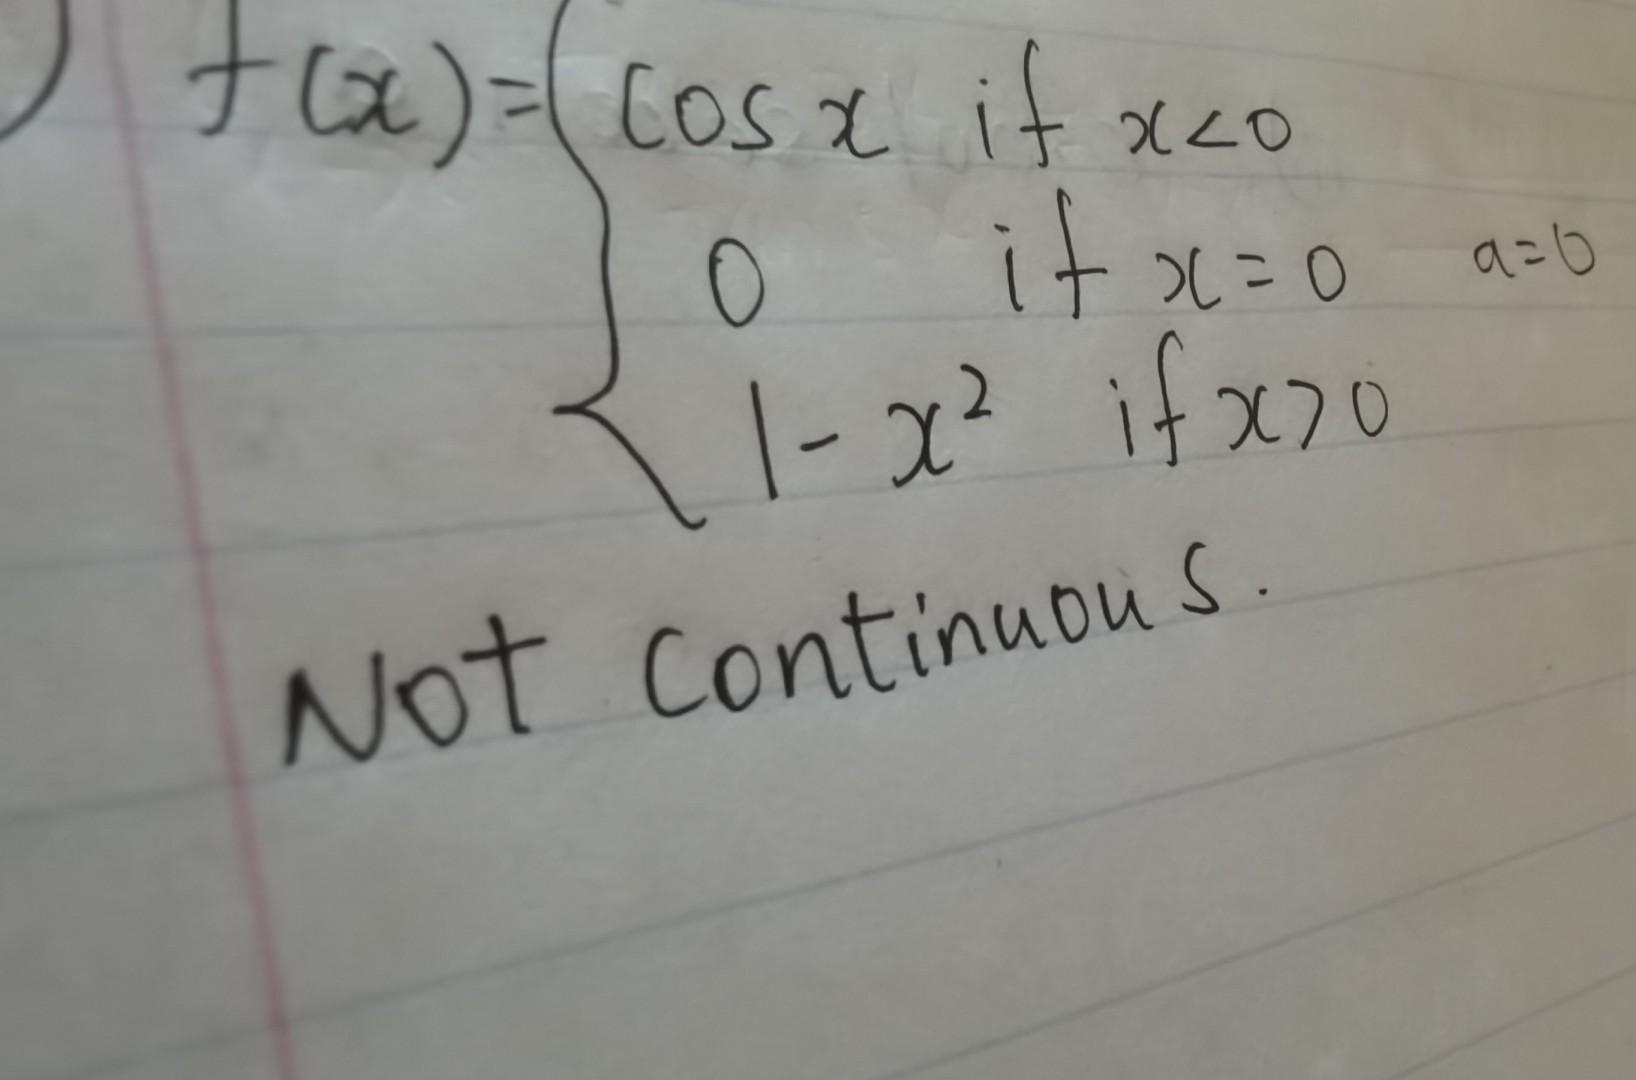 ) f(x) = { cos x if x<0
0 if x = 0 a=0
1 - x² if x>0
Not continuous.